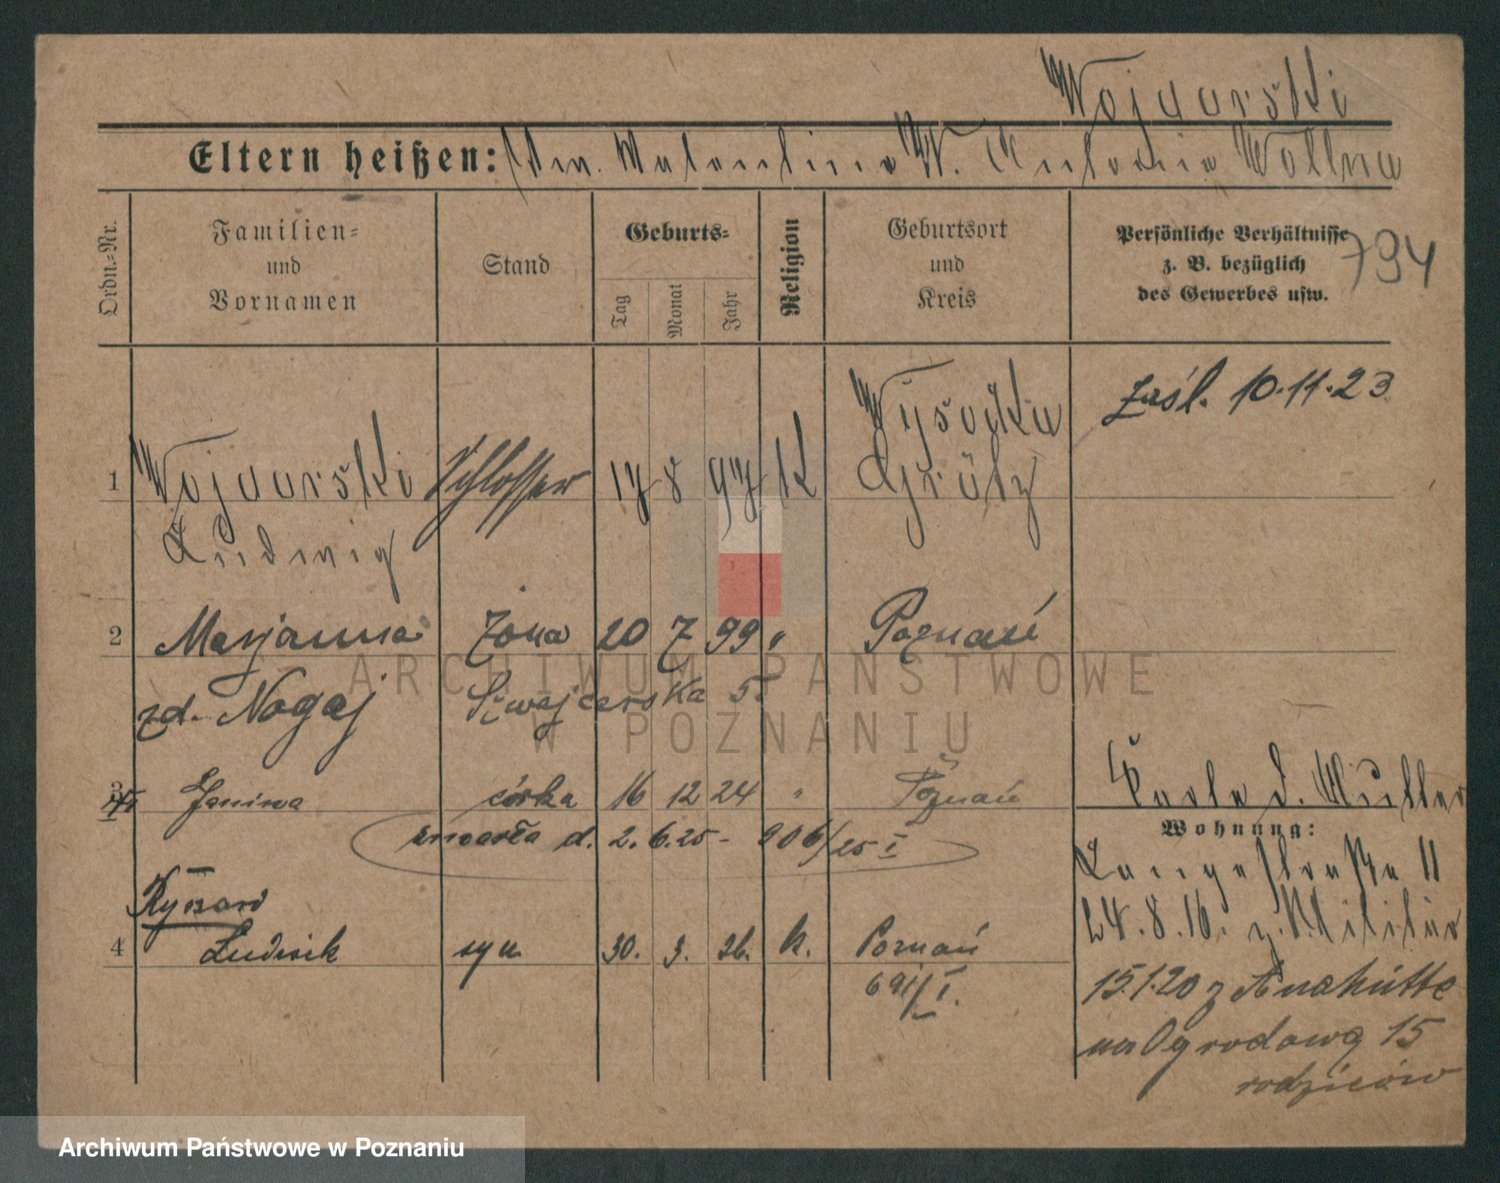 Wojdarski
Eltern heißen: Wollna
Ordn.-Nr.
Familien- und Vornamen
Stand
Geburts-
Tag
Monat
Jahr
Religion
Geburtsort und Kreis
Persönliche Verhältnisse
z. B. bezüglich
des Gewerbes usw.
794
zaśl. 10.11.23
1 Schlosser 17 8 97 K Grätz
Ludwig
2 Marjanna żona 20 7 99 " Poznań
zd. Nogaj Szwajcarska 5
3 Janina córka 16 12 24 " Poznań
zmarła d. 2. 6. 25 - 906/25 I
Ryszard
4 Ludwik syn 30. 3. 26. k. Poznań
691/I.
Wohnung:
Langestraße 11
24.8.16. z. Militär
15.1.20 z
na Ogrodową 15
rodziców
ARCHIWUM PAŃSTWOWE
W POZNANIU
Archiwum Państwowe w Poznaniu